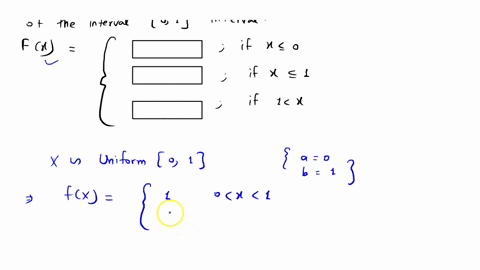 of the interval [0, 1] interval.
F(x) = { ; if x ≤ 0
; if x ≤ 1
; if 1 < x
X ~ Uniform [0, 1] { a = 0
b = 1 }
⇒ f(x) = { 1 0 < x < 1